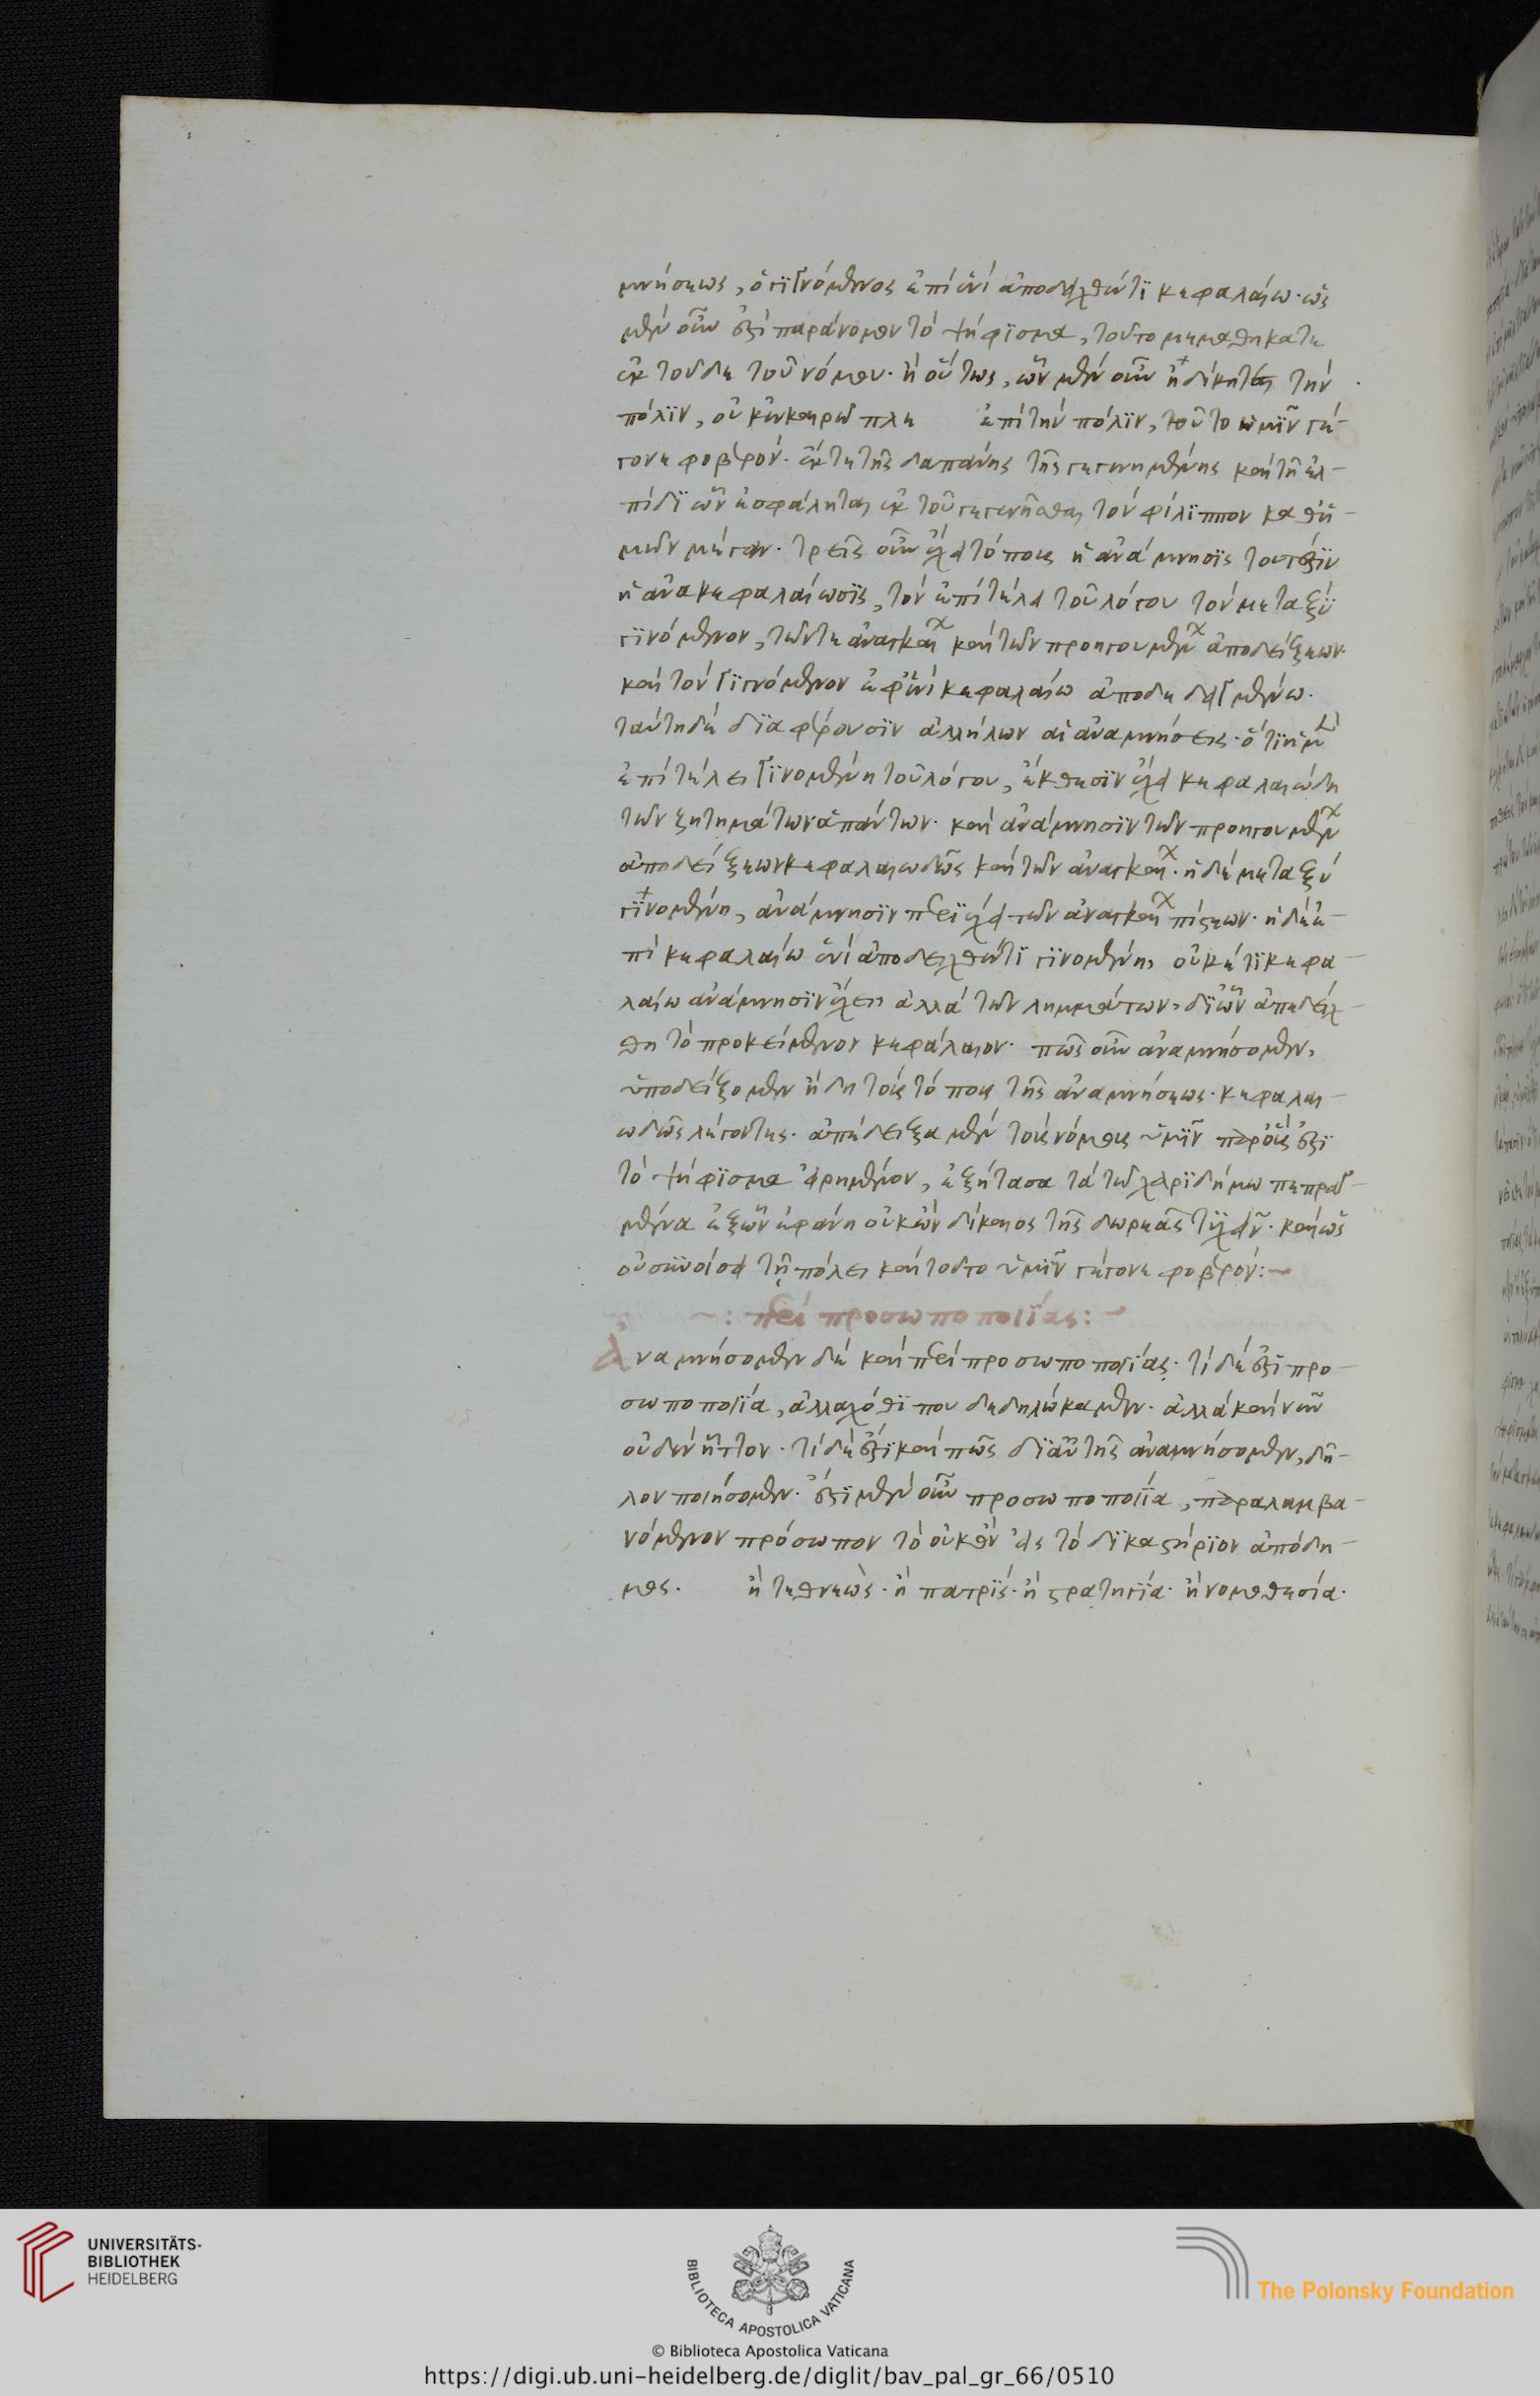 μνήσεως, ὁ γινόμενος ἐπὶ ἑνὶ ἀποδειχθέντι κεφαλαίω· ὡς
μὲν οὖν ἐστὶ παράνομον τὸ ψήφισμα, τοῦτο μεμαθήκατε
ἐκ τοῦδε τοῦ νόμου· ἢ οὕτως, ὧν μὲν οὖν ἠδίκηται τὴν
πόλιν, οὐκ ἐν καιρῶ πλε ἐπὶ τὴν πόλιν, τοῦτο ἡμῖν γέ-
γονε φοβερόν· ἔκ τε τῆς δαπάνης τῆς γεγενημένης καὶ τῆ ἐλ-
πίδι ὧν ἐσφάληται ἐκ τοῦ γεγενῆσθαι τὸν φίλιππον καθ' ἡ-
μῶν μέγαν· τρεῖς οὖν ἔχει τόπους ἡ ἀνάμνησις τουτέστιν
ἡ ἀνακεφαλαίωσις, τὸν ἐπὶ τέλει τοῦ λόγου τὸν μεταξὺ
γινόμενον, τῶν τε ἀνασκευ καὶ τῶν προηγουμεν ἀποδείξεων·
καὶ τὸν γιγνόμενον ἐφ' ἑνὶ κεφαλαίω ἀποδεδειγμένω·
ταύτη δὲ διαφέρουσιν ἀλλήλων αἱ ἀναμνήσεις· ὅτι ἡ μὲν
ἐπὶ τέλει γινομένη τοῦ λόγου, ἔκθεσιν ἔχει κεφαλαιώδη
τῶν ζητημάτων ἁπάντων· καὶ ἀνάμνησιν τῶν προηγουμεν
ἀποδείξεων κεφαλαιωδῶς καὶ τῶν ἀνασκευ· ἡ δὲ μεταξὺ
γινομένη, ἀνάμνησιν περιέχει τῶν ἀνασκευ πίστεων· ἡ δὲ ἐ-
πὶ κεφαλαίω ἑνὶ ἀποδειχθέντι γινομένη, οὐκέτι κεφα-
λαίω ἀνάμνησιν ἔχει, ἀλλὰ τῶν λημμάτων, δι' ὧν ἀπεδείχ-
θη τὸ προκείμενον κεφάλαιον· πῶς οὖν ἀναμνήσομεν,
ὑποδείξομεν ἤδη τοὺς τόπους τῆς ἀναμνήσεως· κεφαλαι-
ωδῶς λέγοντες· ἀπέδειξα μὲν τοὺς νόμους ὑμῖν παρ' οὓς ἐστὶ
τὸ ψήφισμα εἰρημένον, ἐξήτασα τὰ τῶ χαριδήμω πεπραγ-
μένα ἐξ ὧν ἐφάνη οὐκ ὢν δίκαιος τῆς δωρεᾶς τυχεῖν· καὶ ὡς
οὐ συνοίσει τῆ πόλει καὶ τοῦτο ὑμῖν γέγονε φοβερόν:-
~: περὶ προσωποποιίας:-
Ἀναμνήσομεν δὲ καὶ περὶ προσωποποιίας· τί δέ ἐστι προ-
σωποποιία, ἀλλαχόθι που δεδηλώκαμεν· ἀλλὰ καὶ νῦν
οὐδὲν ἧττον· τί δέ ἐστι καὶ πῶς δι' αὐτῆς ἀναμνήσομεν, δῆ-
λον ποιήσομεν· ἔστι μὲν οὖν προσωποποιία, παραλαμβα-
νόμενον πρόσωπον τὸ οὐκ ὂν εἰς τὸ δικαστήριον ἀπόδη-
μος. ἢ τεθνεὼς· ἢ πατρίς· ἢ στρατηγία· ἢ νομοθεσία·
UNIVERSITÄTS-
BIBLIOTHEK
HEIDELBERG
BIBLIOTECA APOSTOLICA VATICANA
The Polonsky Foundation
© Biblioteca Apostolica Vaticana
https://digi.ub.uni-heidelberg.de/diglit/bav_pal_gr_66/0510